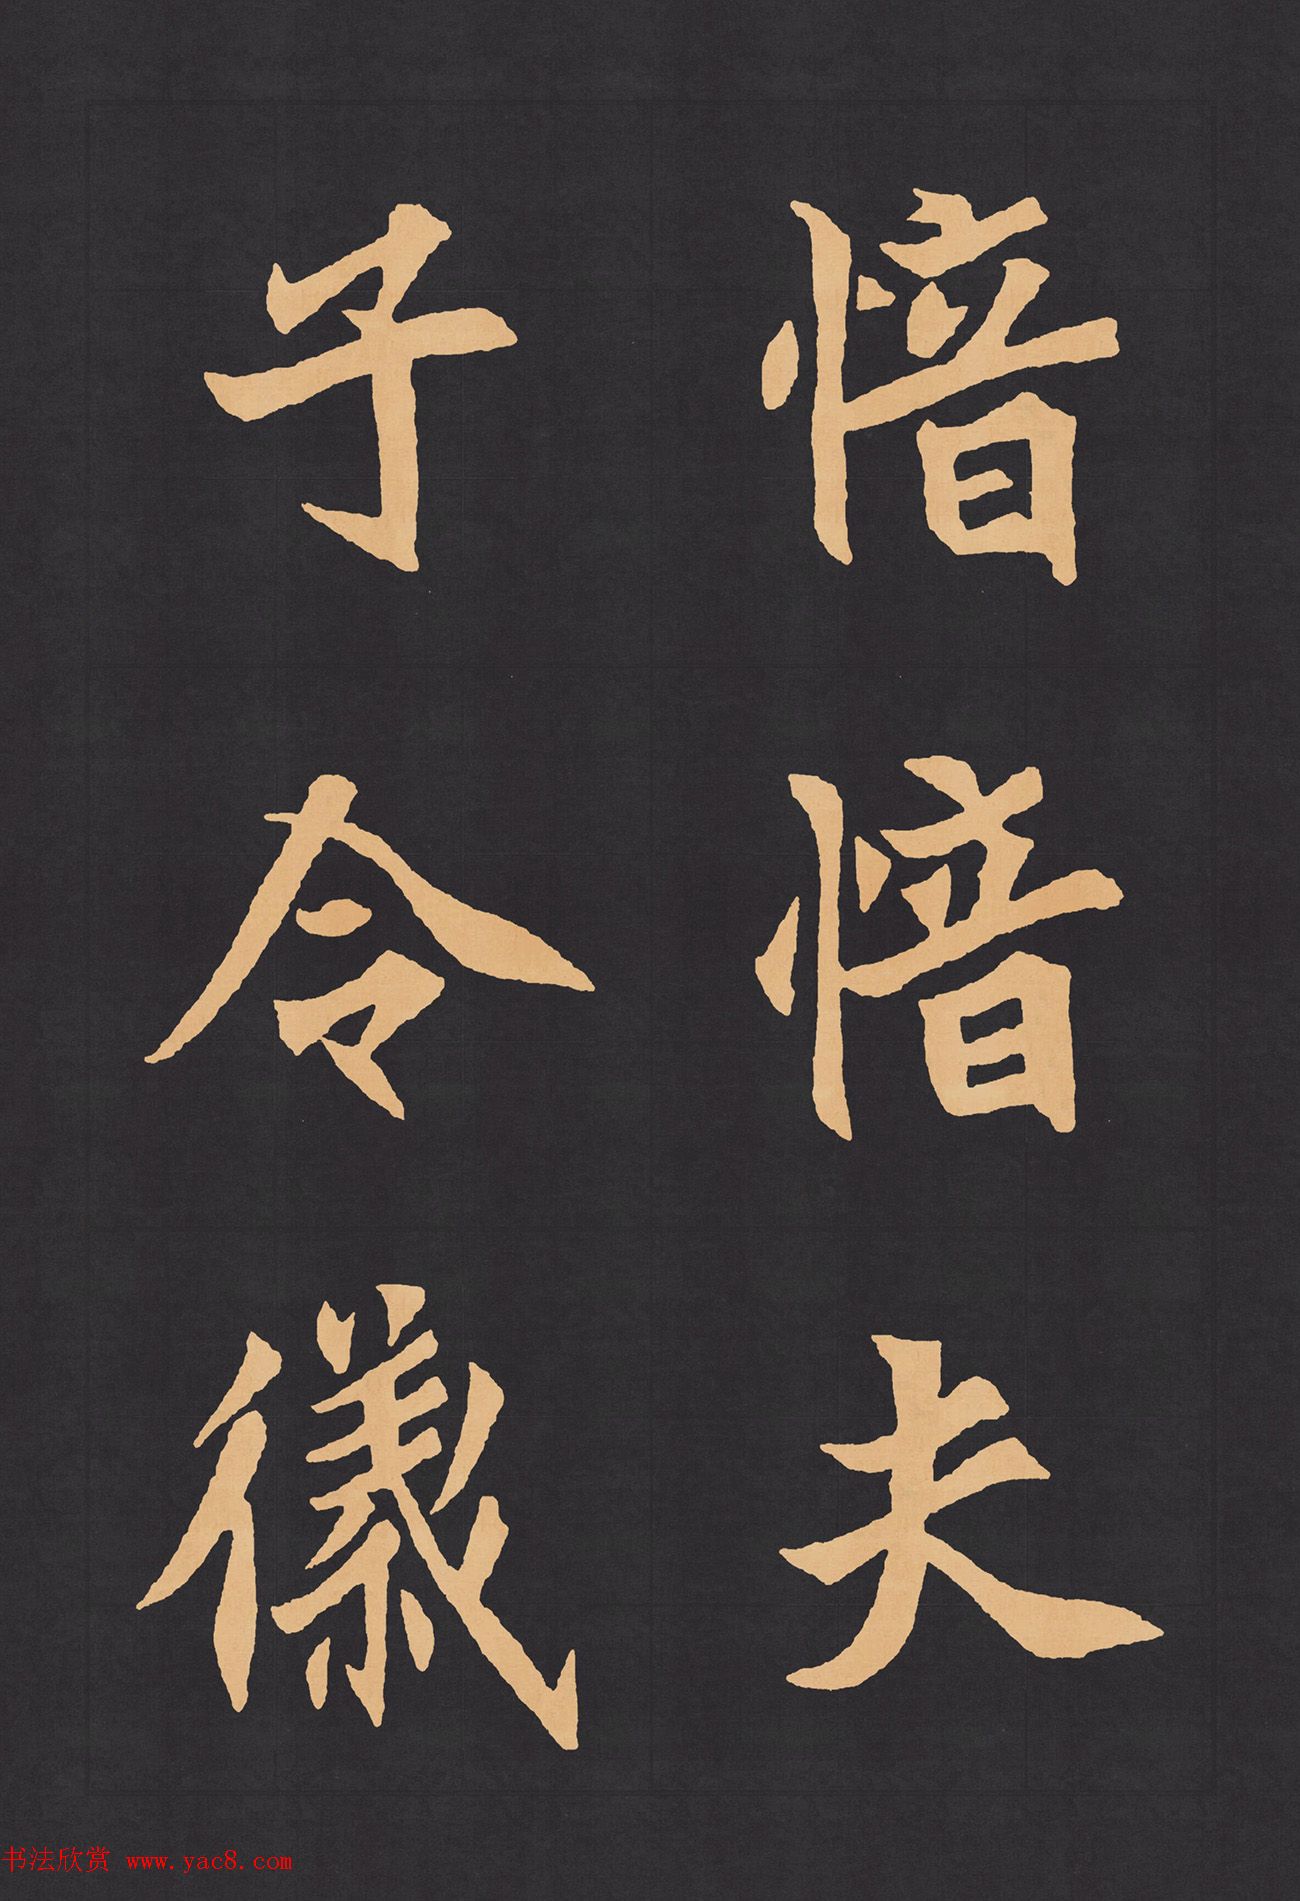 愔愔夫
子令儀
书法欣赏 www.yac8.com